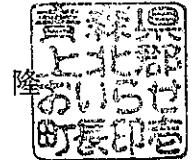 隆
青森県
上北郡
おいらせ
町長印壱